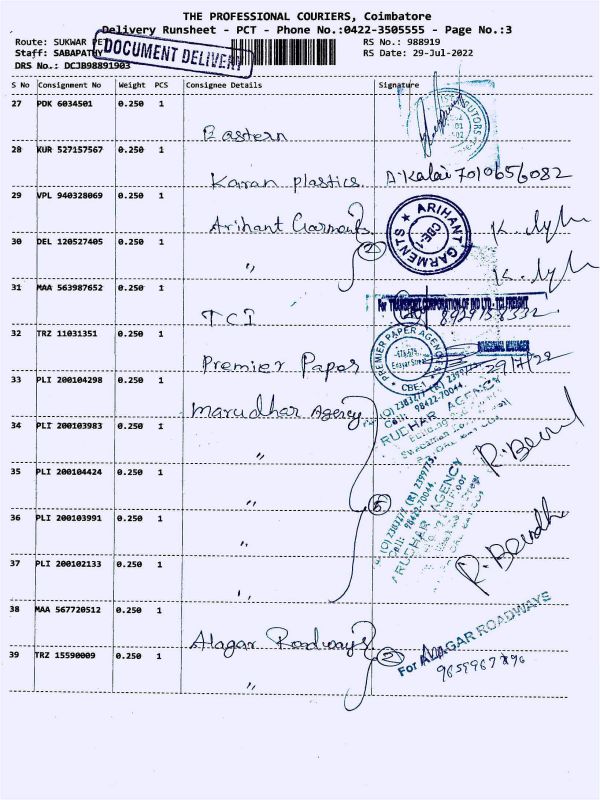 THE PROFESSIONAL COURIERS, Coimbatore
Delivery Runsheet - PCT - Phone No.:0422-3505555 - Page No.:3
Route: SUKWAR PET
RS No.: 988919
Staff: SABAPATHY
RS Date: 29-Jul-2022
DOCUMENT DELIVERY
DRS No.: DCJB98891903
S No Consignment No Weight PCS Consignee Details Signature
27 PDK 6034501 0.250 1
Eastern
28 KUR 527157567 0.250 1
Karan plastics A.Kalai 7010656082
29 VPL 940328069 0.250 1
Arihant Garments
ARIHANT GARMENTS CBE-1
30 DEL 120527405 0.250 1
" 2
31 MAA 563987652 0.250 1
For TRANSPORT CORPORATION OF IND LTD - TCI FREIGHT
TCI
32 TRZ 11031351 0.250 1
PREMIER PAPER AGENCY CBE-1
Premier Paper 29/7/22
33 PLI 200104298 0.250 1
Marudhar Agency
34 PLI 200103983 0.250 1
"
35 PLI 200104424 0.250 1
" 5
36 PLI 200103991 0.250 1
"
37 PLI 200102133 0.250 1
"
38 MAA 567720512 0.250 1
Alagar Roadways 2
For ALAGAR ROADWAYS
39 TRZ 15590009 0.250 1
"